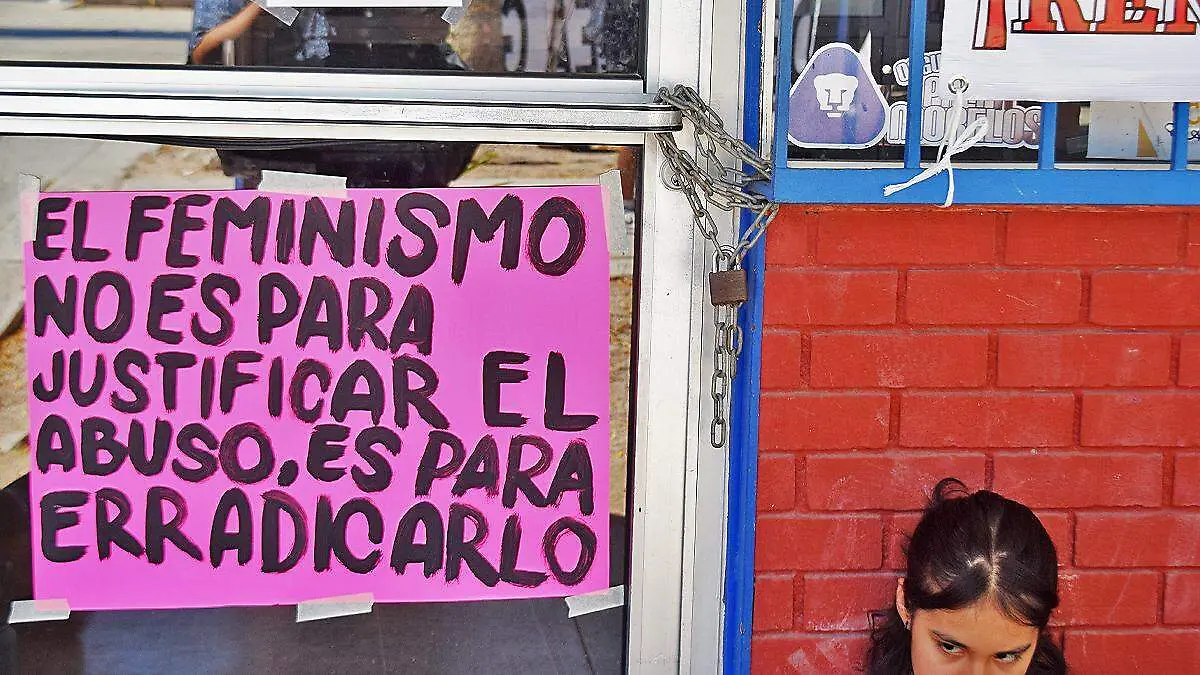 EL FEMINISMO
NO ES PARA
JUSTIFICAR EL
ABUSO, ES PARA
ERRADICARLO
MORELOS